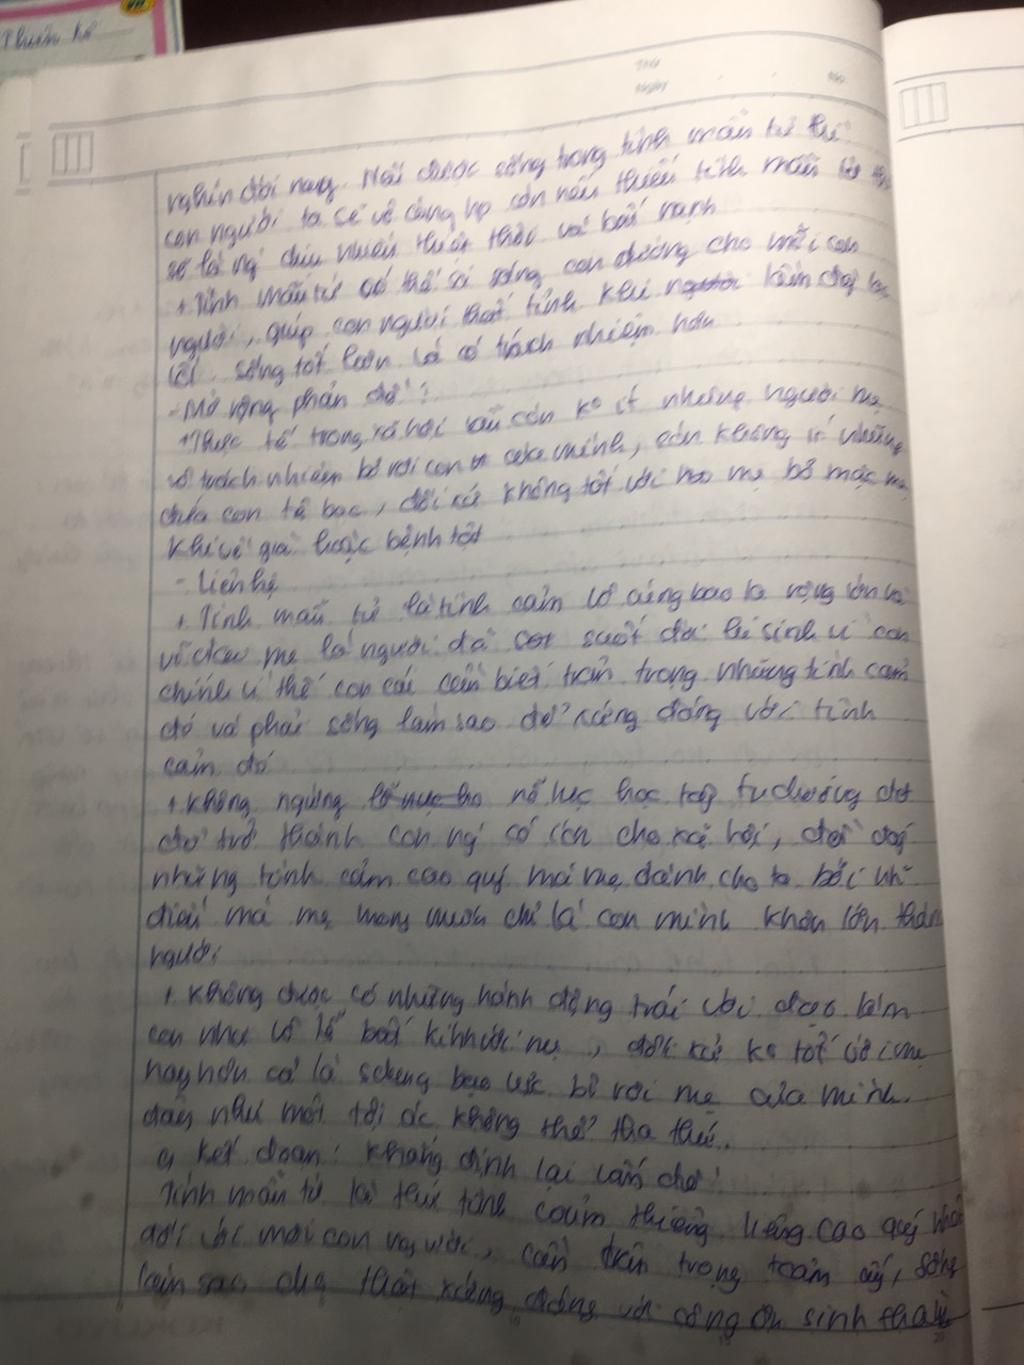 Thứ
Ngày
No.
nghìn đời nay. Nếu được sống trong tình mẫu tử thì
con người ta sẽ vô cùng hp còn nếu thiếu tình mẫu tử
sẽ là ng chịu nhiều thiệt thòi và bất hạnh
+ Tình mẫu tử có thể soi sáng con đường cho mỗi con
người, giúp con người thức tỉnh khi lầm đường lạc
lối. sống tốt hơn và có trách nhiệm hơn
- Mở rộng phản đề:
+ Thực tế trong xã hội vẫn còn ko ít những người mẹ
vô trách nhiệm bỏ rơi con của mình, còn không ít những
đứa con tệ bạc, đối xử không tốt với mẹ bỏ mặc mẹ
khi về già hoặc bệnh tật
- Liên hệ
+ Tình mẫu tử là tình cảm vô cùng bao la rộng lớn và
vĩ đại mẹ là người đã suốt đời hi sinh vì con
chính vì thế con cái cần biết trân trọng những tình cảm
đó và phải sống làm sao để xứng đáng với tình
cảm đó
+ không ngừng nỗ lực học tập tu dưỡng để
để trở thành con ng có ích cho xã hội, đền đáp
những tình cảm cao quý mà mẹ dành cho ta bởi
điều mà mẹ mong muốn chỉ là con mình khôn lớn thành
người.
+ không được có những hành động trái với đạo làm
con như vô lễ bất kính với mẹ, đối xử ko tốt với mẹ
hay hơn cả là bạo lực bỏ rơi mẹ của mình.
đây như một tội ác không thể tha thứ.
c, kết đoạn: khẳng định lại vấn đề:
Tình mẫu tử là thứ tình cảm thiêng liêng cao quý nhất
đối với mỗi con người, cần trân trọng sống
làm sao cho thật xứng đáng với công ơn sinh thành